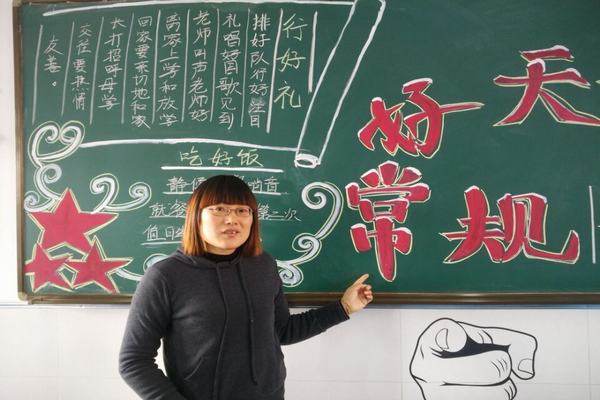 行好礼
排好队行好目
礼唱好国歌见到
老师叫声老师好
离家上学和放学
回家要亲切地和家
长打招呼学
交往要热情
友善。
吃好饭
静候音
就餐第二次
值日
好天
常规